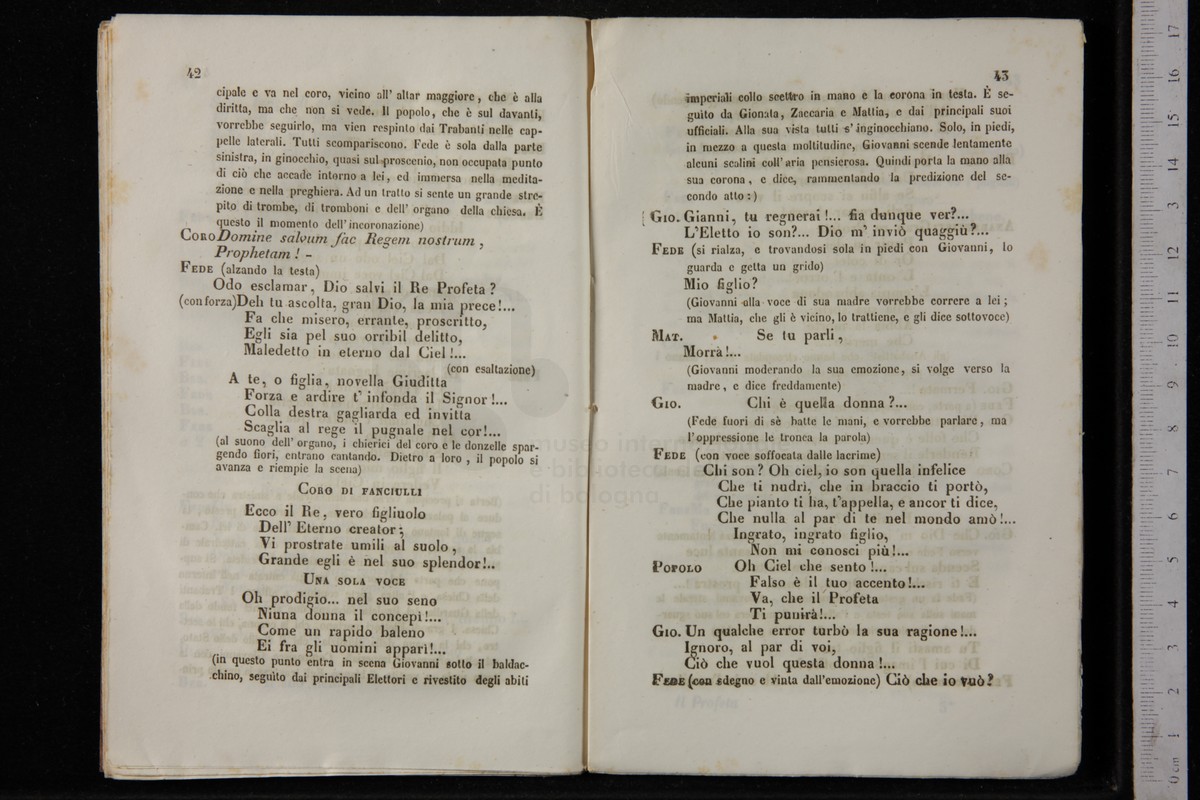 42
cipale e va nel coro, vicino all' altar maggiore, che è alla
diritta, ma che non si vede. Il popolo, che è sul davanti,
vorrebbe seguirlo, ma vien respinto dai Trabanti nelle cap-
pelle laterali. Tutti scompariscono. Fede è sola dalla parte
sinistra, in ginocchio, quasi sul proscenio, non occupata punto
di ciò che accade intorno a lei, ed immersa nella medita-
zione e nella preghiera. Ad un tratto si sente un grande stre-
pito di trombe, di tromboni e dell' organo della chiesa. È
questo il momento dell' incoronazione)
CORO Domine salvum fac Regem nostrum,
Prophetam! -
FEDE (alzando la testa)
Odo esclamar, Dio salvi il Re Profeta?
(con forza) Deh tu ascolta, gran Dio, la mia prece!...
Fa che misero, errante, proscritto,
Egli sia pel suo orribil delitto,
Maledetto in eterno dal Ciel!...
(con esaltazione)
A te, o figlia, novella Giuditta
Forza e ardire t' infonda il Signor!...
Colla destra gagliarda ed invitta
Scaglia al rege il pugnale nel cor!...
(al suono dell' organo, i chierici del coro e le donzelle spar-
gendo fiori, entrano cantando. Dietro a loro, il popolo si
avanza e riempie la scena)
CORO DI FANCIULLI
Ecco il Re, vero figliuolo
Dell' Eterno creator;
Vi prostrate umili al suolo,
Grande egli è nel suo splendor!..
UNA SOLA VOCE
Oh prodigio... nel suo seno
Niuna donna il concepì!...
Come un rapido baleno
Ei fra gli uomini apparì!...
(in questo punto entra in scena Giovanni sotto il baldac-
chino, seguito dai principali Elettori e rivestito degli abiti
43
imperiali collo scettro in mano e la corona in testa. È se-
guito da Gionata, Zaccaria e Mattia, e dai principali suoi
ufficiali. Alla sua vista tutti s' inginocchiano. Solo, in piedi,
in mezzo a questa moltitudine, Giovanni scende lentamente
alcuni scalini coll' aria pensierosa. Quindi porta la mano alla
sua corona, e dice, rammentando la predizione del se-
condo atto:)
GIO. Gianni, tu regnerai!... fia dunque ver?...
L'Eletto io son?... Dio m' inviò quaggiù?...
FEDE (si rialza, e trovandosi sola in piedi con Giovanni, lo
guarda e getta un grido)
Mio figlio?
(Giovanni alla voce di sua madre vorrebbe correre a lei;
ma Mattia, che gli è vicino, lo trattiene, e gli dice sottovoce)
MAT. Se tu parli,
Morrà!...
(Giovanni moderando la sua emozione, si volge verso la
madre, e dice freddamente)
GIO. Chi è quella donna?...
(Fede fuori di sè batte le mani, e vorrebbe parlare, ma
l'oppressione le tronca la parola)
FEDE (con voce soffocata dalle lacrime)
Chi son? Oh ciel, io son quella infelice
Che ti nudrì, che in braccio ti portò,
Che pianto ti ha, t'appella, e ancor ti dice,
Che nulla al par di te nel mondo amò!...
Ingrato, ingrato figlio,
Non mi conosci più!...
POPOLO Oh Ciel che sento!...
Falso è il tuo accento!...
Va, che il Profeta
Ti punirà!...
GIO. Un qualche error turbò la sua ragione!...
Ignoro, al par di voi,
Ciò che vuol questa donna!...
FEDE (con sdegno e vinta dall'emozione) Ciò che io vuò?
museo internazionale
e biblioteca della musica
di bologna
0 cm 1 2 3 4 5 6 7 8 9 10 11 12 13 14 15 16 17